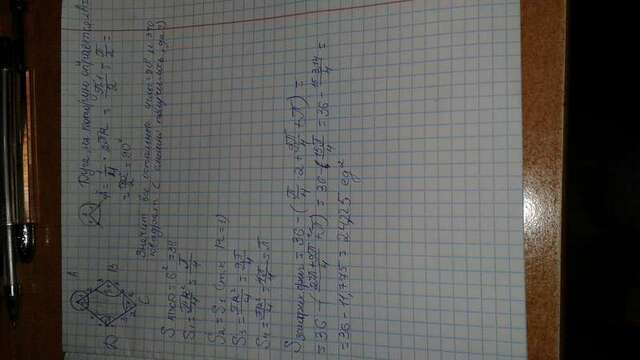 A
D
B
C
Дуга, на которую опирается ∠A
A = 1/4 · 2πR = π·1/2 = π/2 =
= 180°/2 = 90°
Значит все остальные углы = 90° и это
квадрат (сложно получилось, да?)
S ABCD = 6² = 36
S₁ = πR²/4 = π/4
S₂ = S₁ (т.к R = 1)
S₃ = πR²/4 = 9π/4
S₄ = πR²/4 = 4π/4 = π
S заштрих. фиг = 36 − (π/4 · 2 + 9π/4 + π) =
= 36 − (2π+9π/4 + π) = 36 − (15π/4) = 36 − 15·3,14/4 =
= 36 − 11,775 = 24,225 ед²